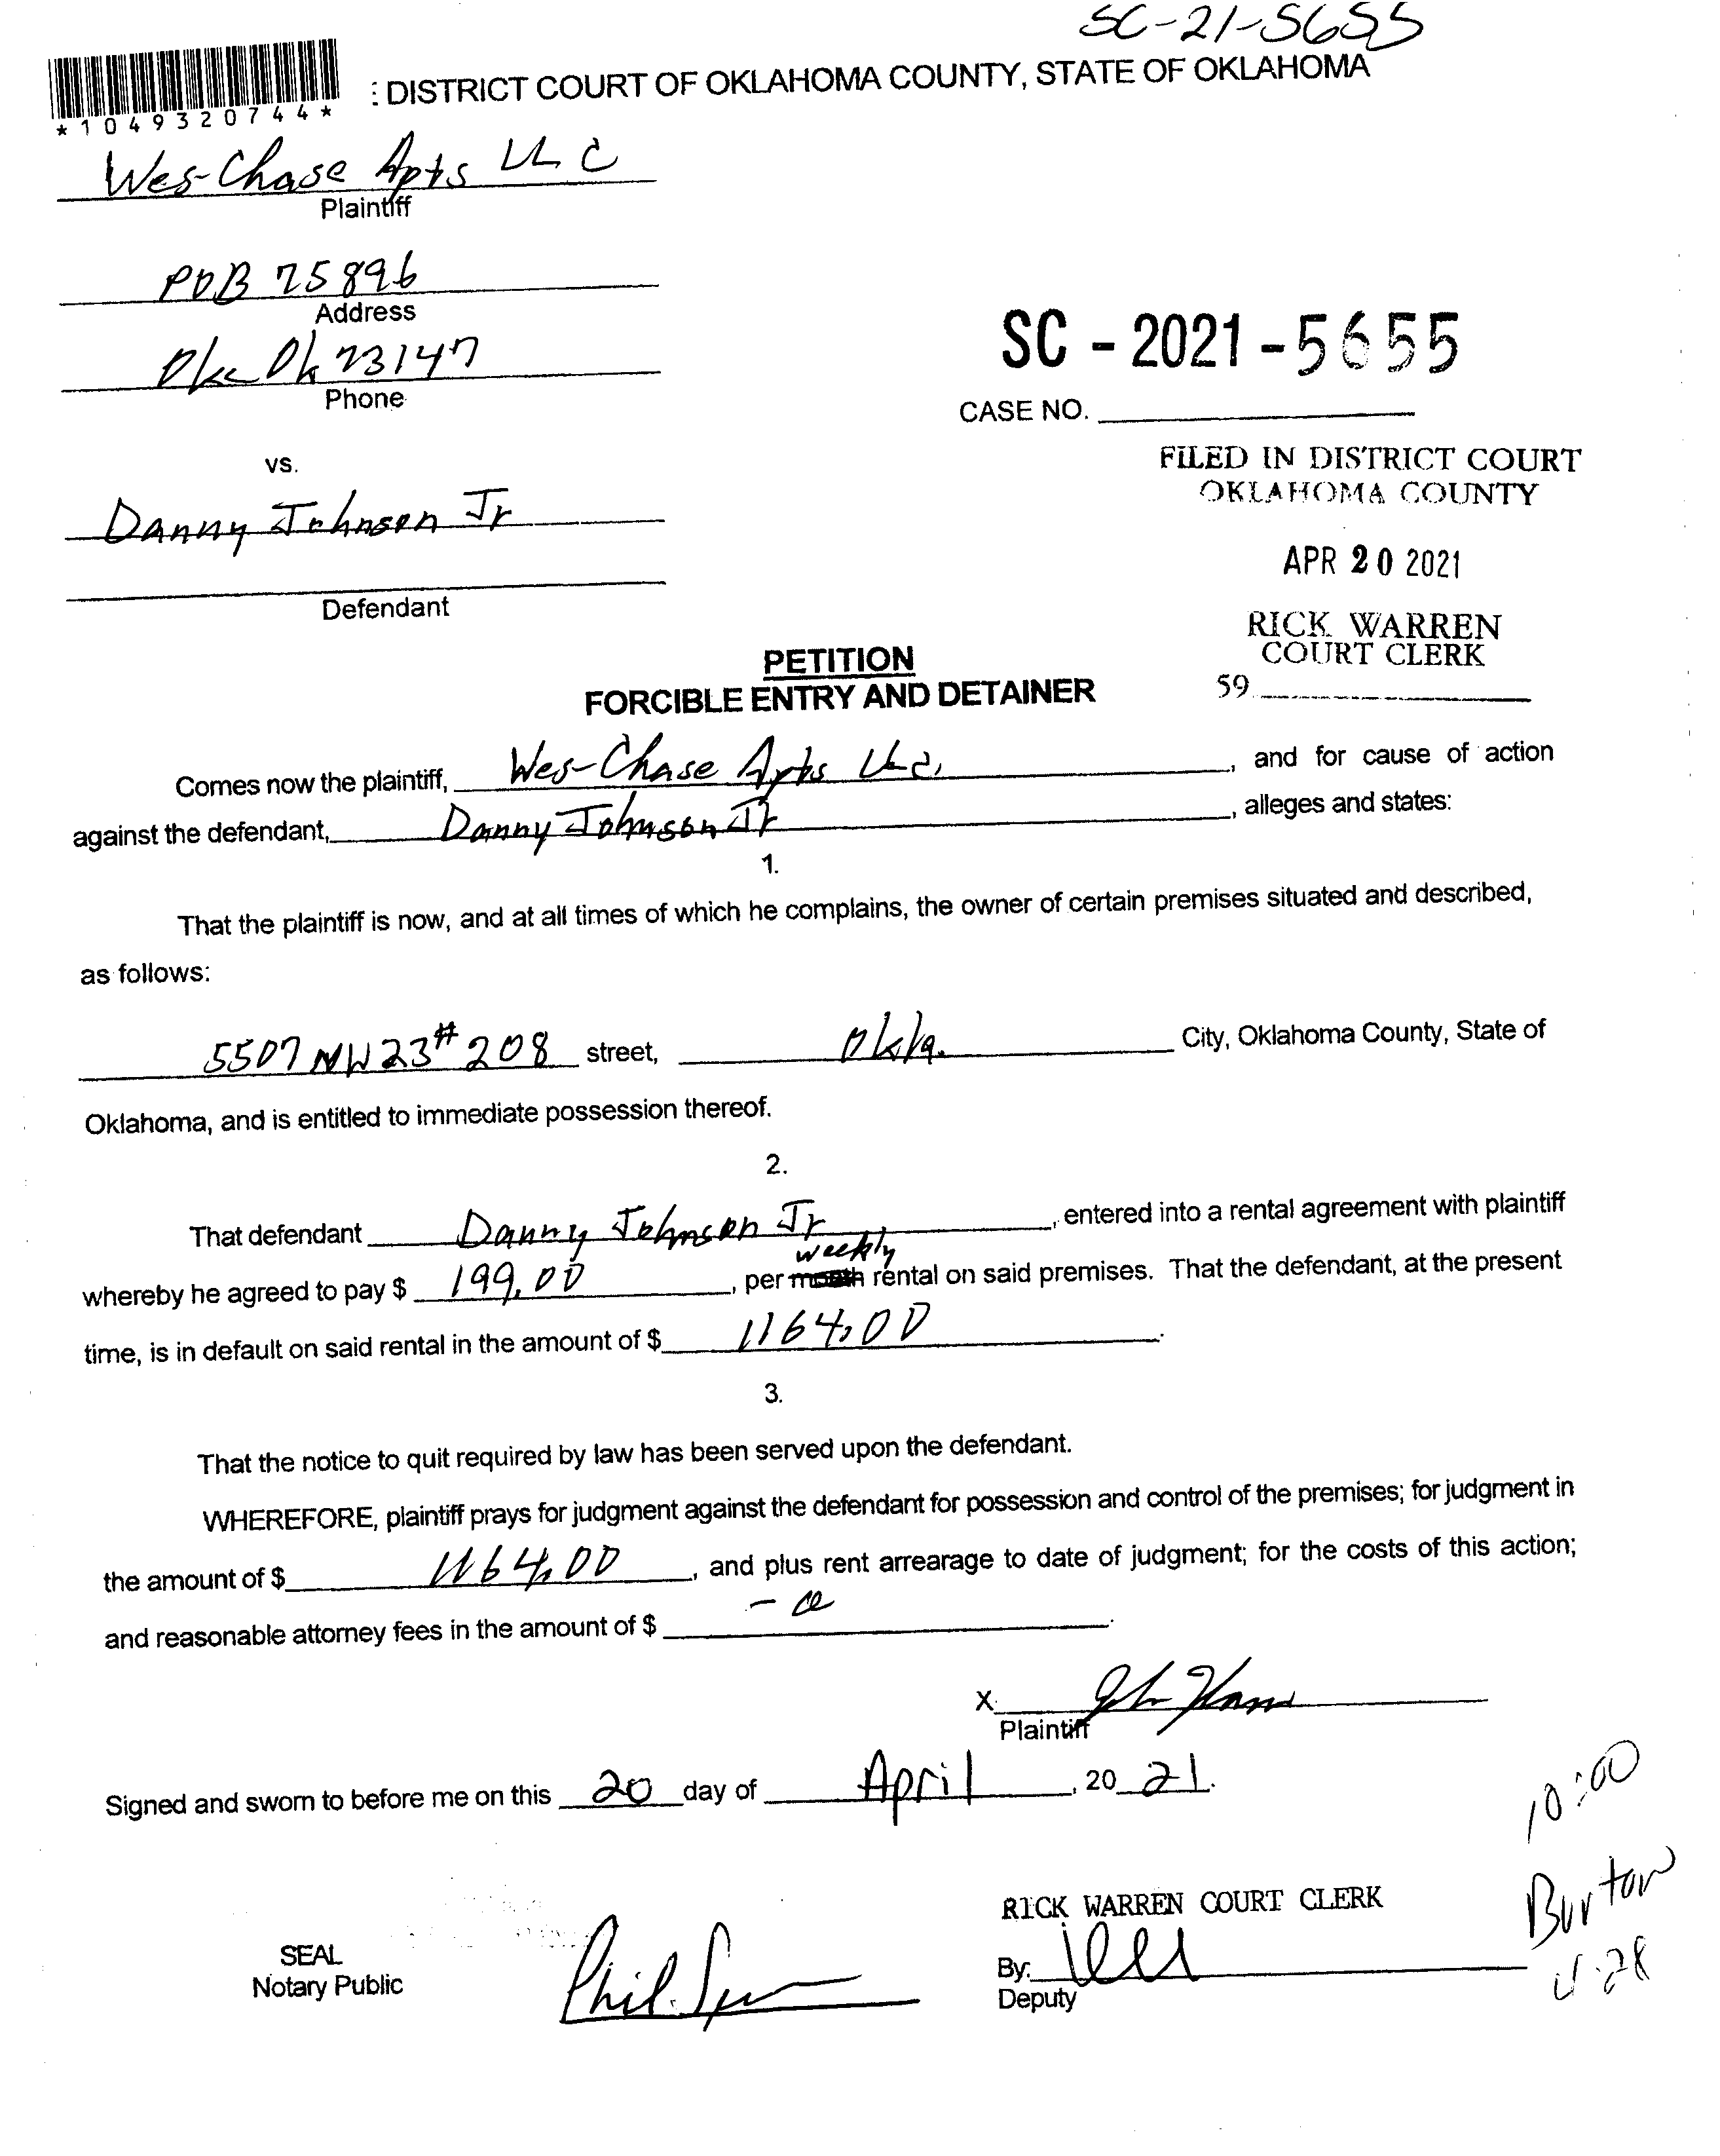 SC-21-5655
: DISTRICT COURT OF OKLAHOMA COUNTY, STATE OF OKLAHOMA
*1049320744*
Wes-Chase Apts LLC
Plaintiff
POB 75896
Address
Okc Ok 73147
Phone
SC - 2021 - 5655
CASE NO.
FILED IN DISTRICT COURT
OKLAHOMA COUNTY
vs.
Danny Johnson Jr
APR 20 2021
Defendant
RICK WARREN
COURT CLERK
59
PETITION
FORCIBLE ENTRY AND DETAINER
Comes now the plaintiff, Wes-Chase Apts LLC, and for cause of action
against the defendant, Danny Johnson Jr, alleges and states:
1.
That the plaintiff is now, and at all times of which he complains, the owner of certain premises situated and described,
as follows:
5507 NW 23 # 208 street, Okla. City, Oklahoma County, State of
Oklahoma, and is entitled to immediate possession thereof.
2.
That defendant Danny Johnson Jr, entered into a rental agreement with plaintiff
weekly
whereby he agreed to pay $ 199.00, per month rental on said premises. That the defendant, at the present
time, is in default on said rental in the amount of $ 1164.00.
3.
That the notice to quit required by law has been served upon the defendant.
WHEREFORE, plaintiff prays for judgment against the defendant for possession and control of the premises; for judgment in
the amount of $ 1164.00, and plus rent arrearage to date of judgment; for the costs of this action;
and reasonable attorney fees in the amount of $
X
Plaintiff
Signed and sworn to before me on this 20 day of April, 20 21.
10:00
Burton
4-28
RICK WARREN COURT CLERK
SEAL
Notary Public
By:
Deputy